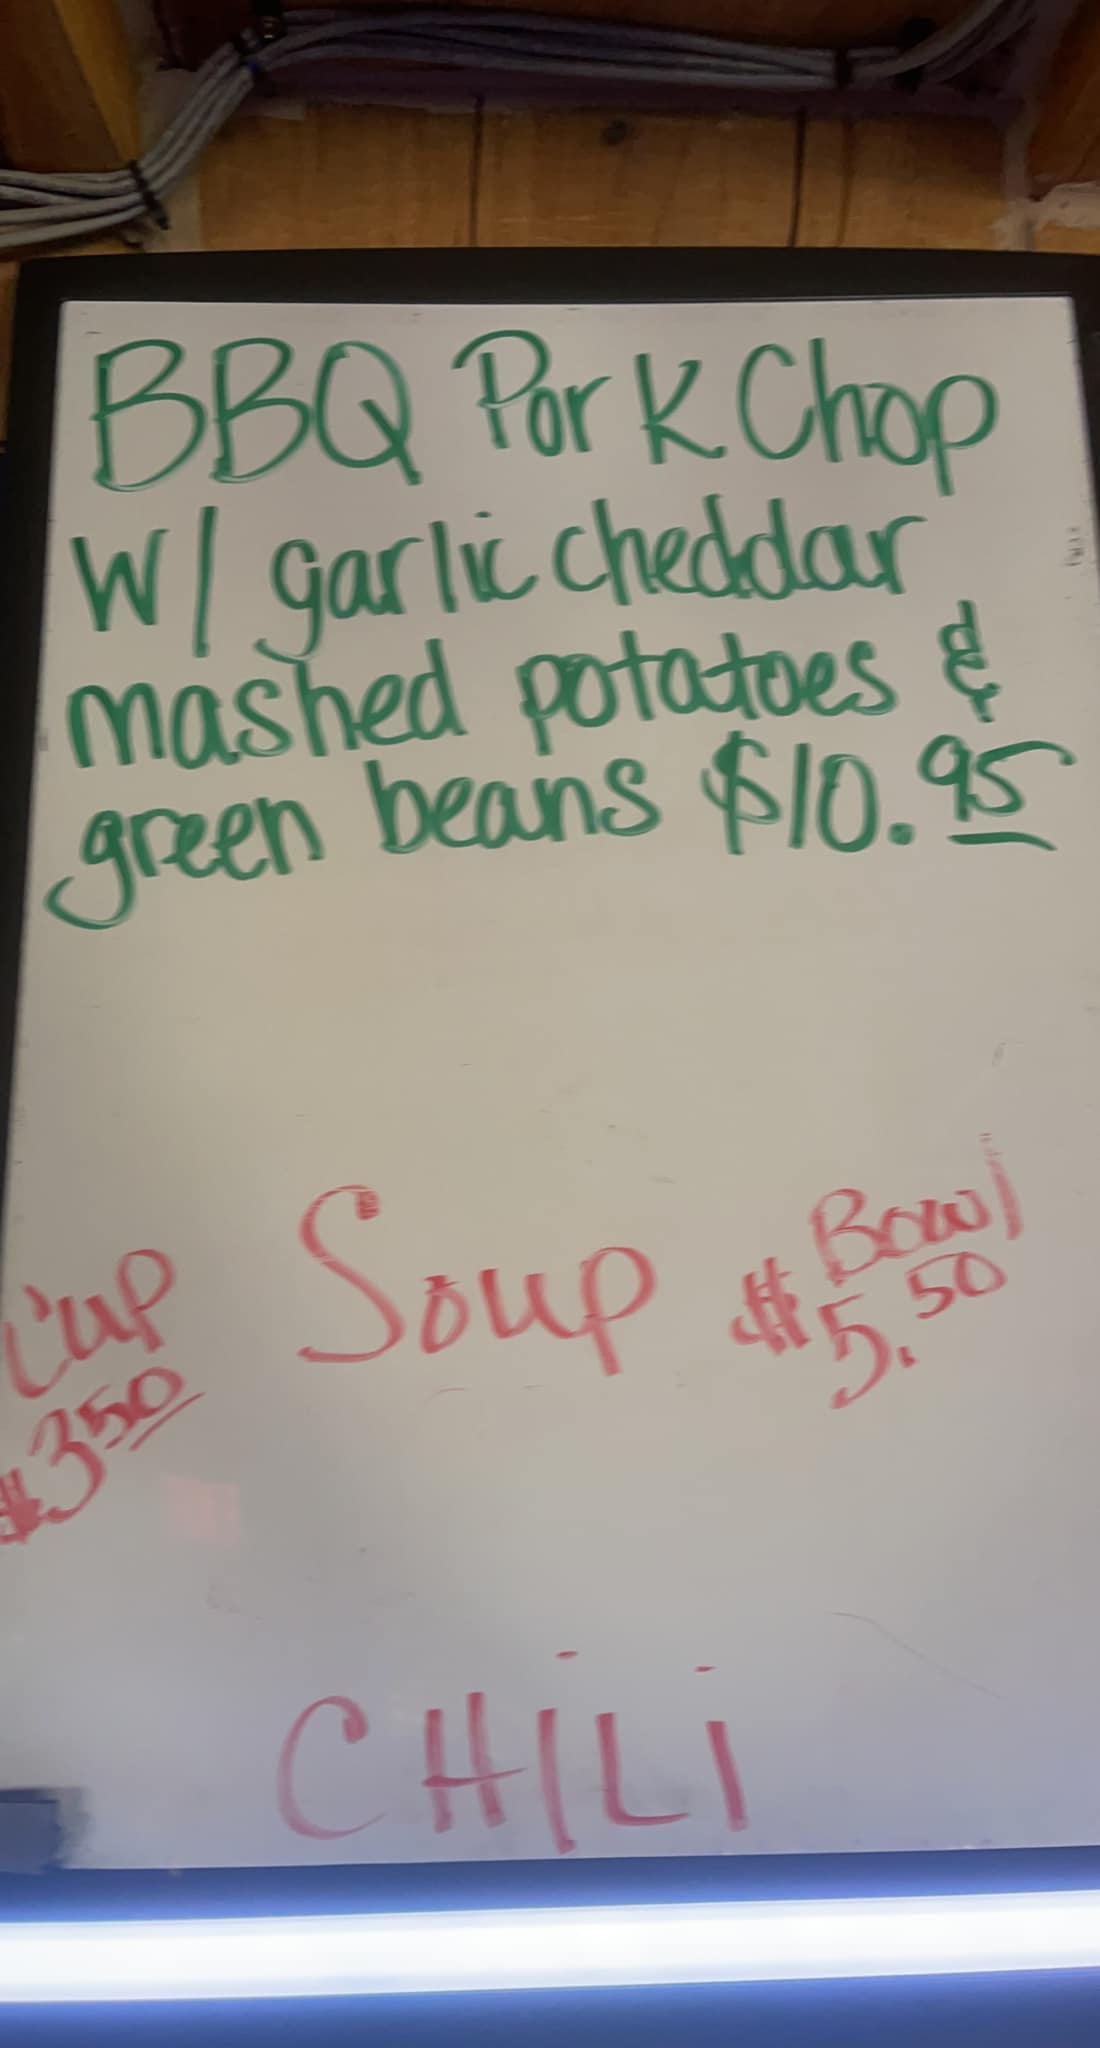 BBQ Pork Chop
W/ garlic cheddar
mashed potatoes &
green beans $10.95
Cup Soup Bowl
$3.50 $5.50
CHiLi